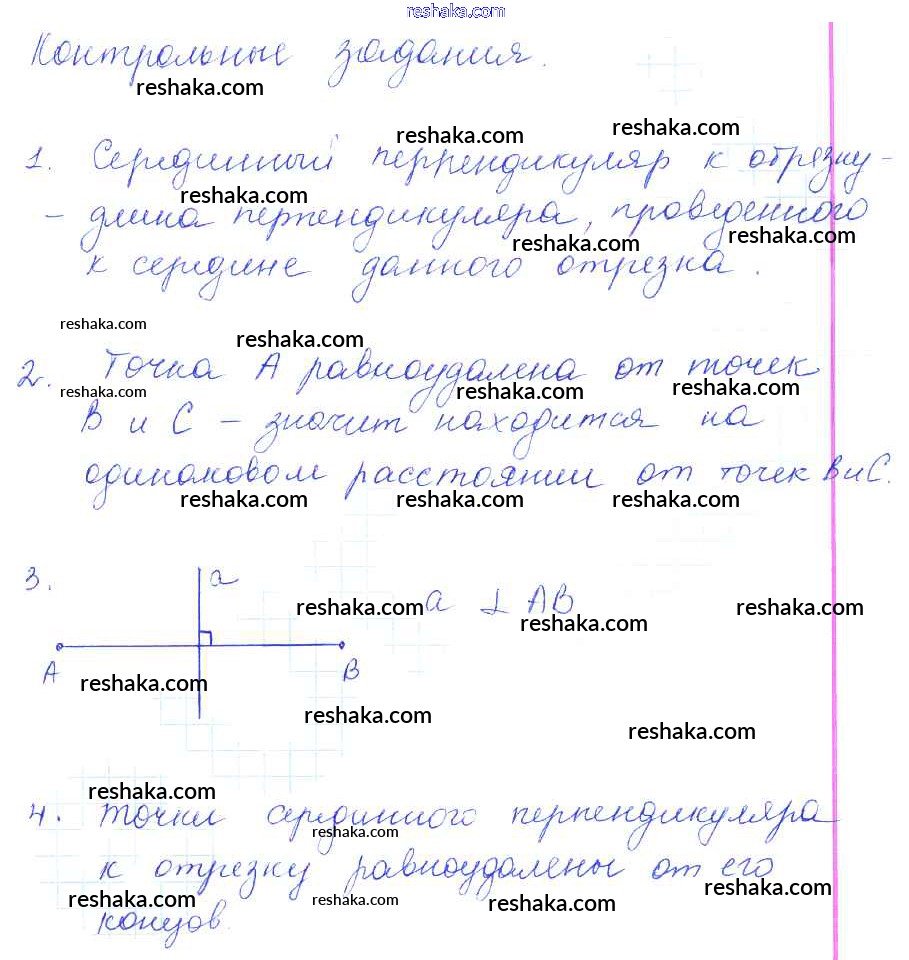 reshaka.com
Контрольные задания.
reshaka.com
reshaka.com reshaka.com
1. Серединный перпендикуляр к отрезку -
reshaka.com
- длина перпендикуляра, проведенного
reshaka.com reshaka.com
к середине данного отрезка.
reshaka.com reshaka.com
2. Точка А равноудалена от точек
reshaka.com reshaka.com reshaka.com
В и С – значит находится на
одинаковом расстоянии от точек В и С.
reshaka.com reshaka.com reshaka.com
3. a
reshaka.com a ⊥ AB reshaka.com
reshaka.com
A B
reshaka.com
reshaka.com reshaka.com
reshaka.com
4. Точки серединного перпендикуляра
reshaka.com
к отрезку равноудалены от его
reshaka.com reshaka.com reshaka.com reshaka.com
концов.